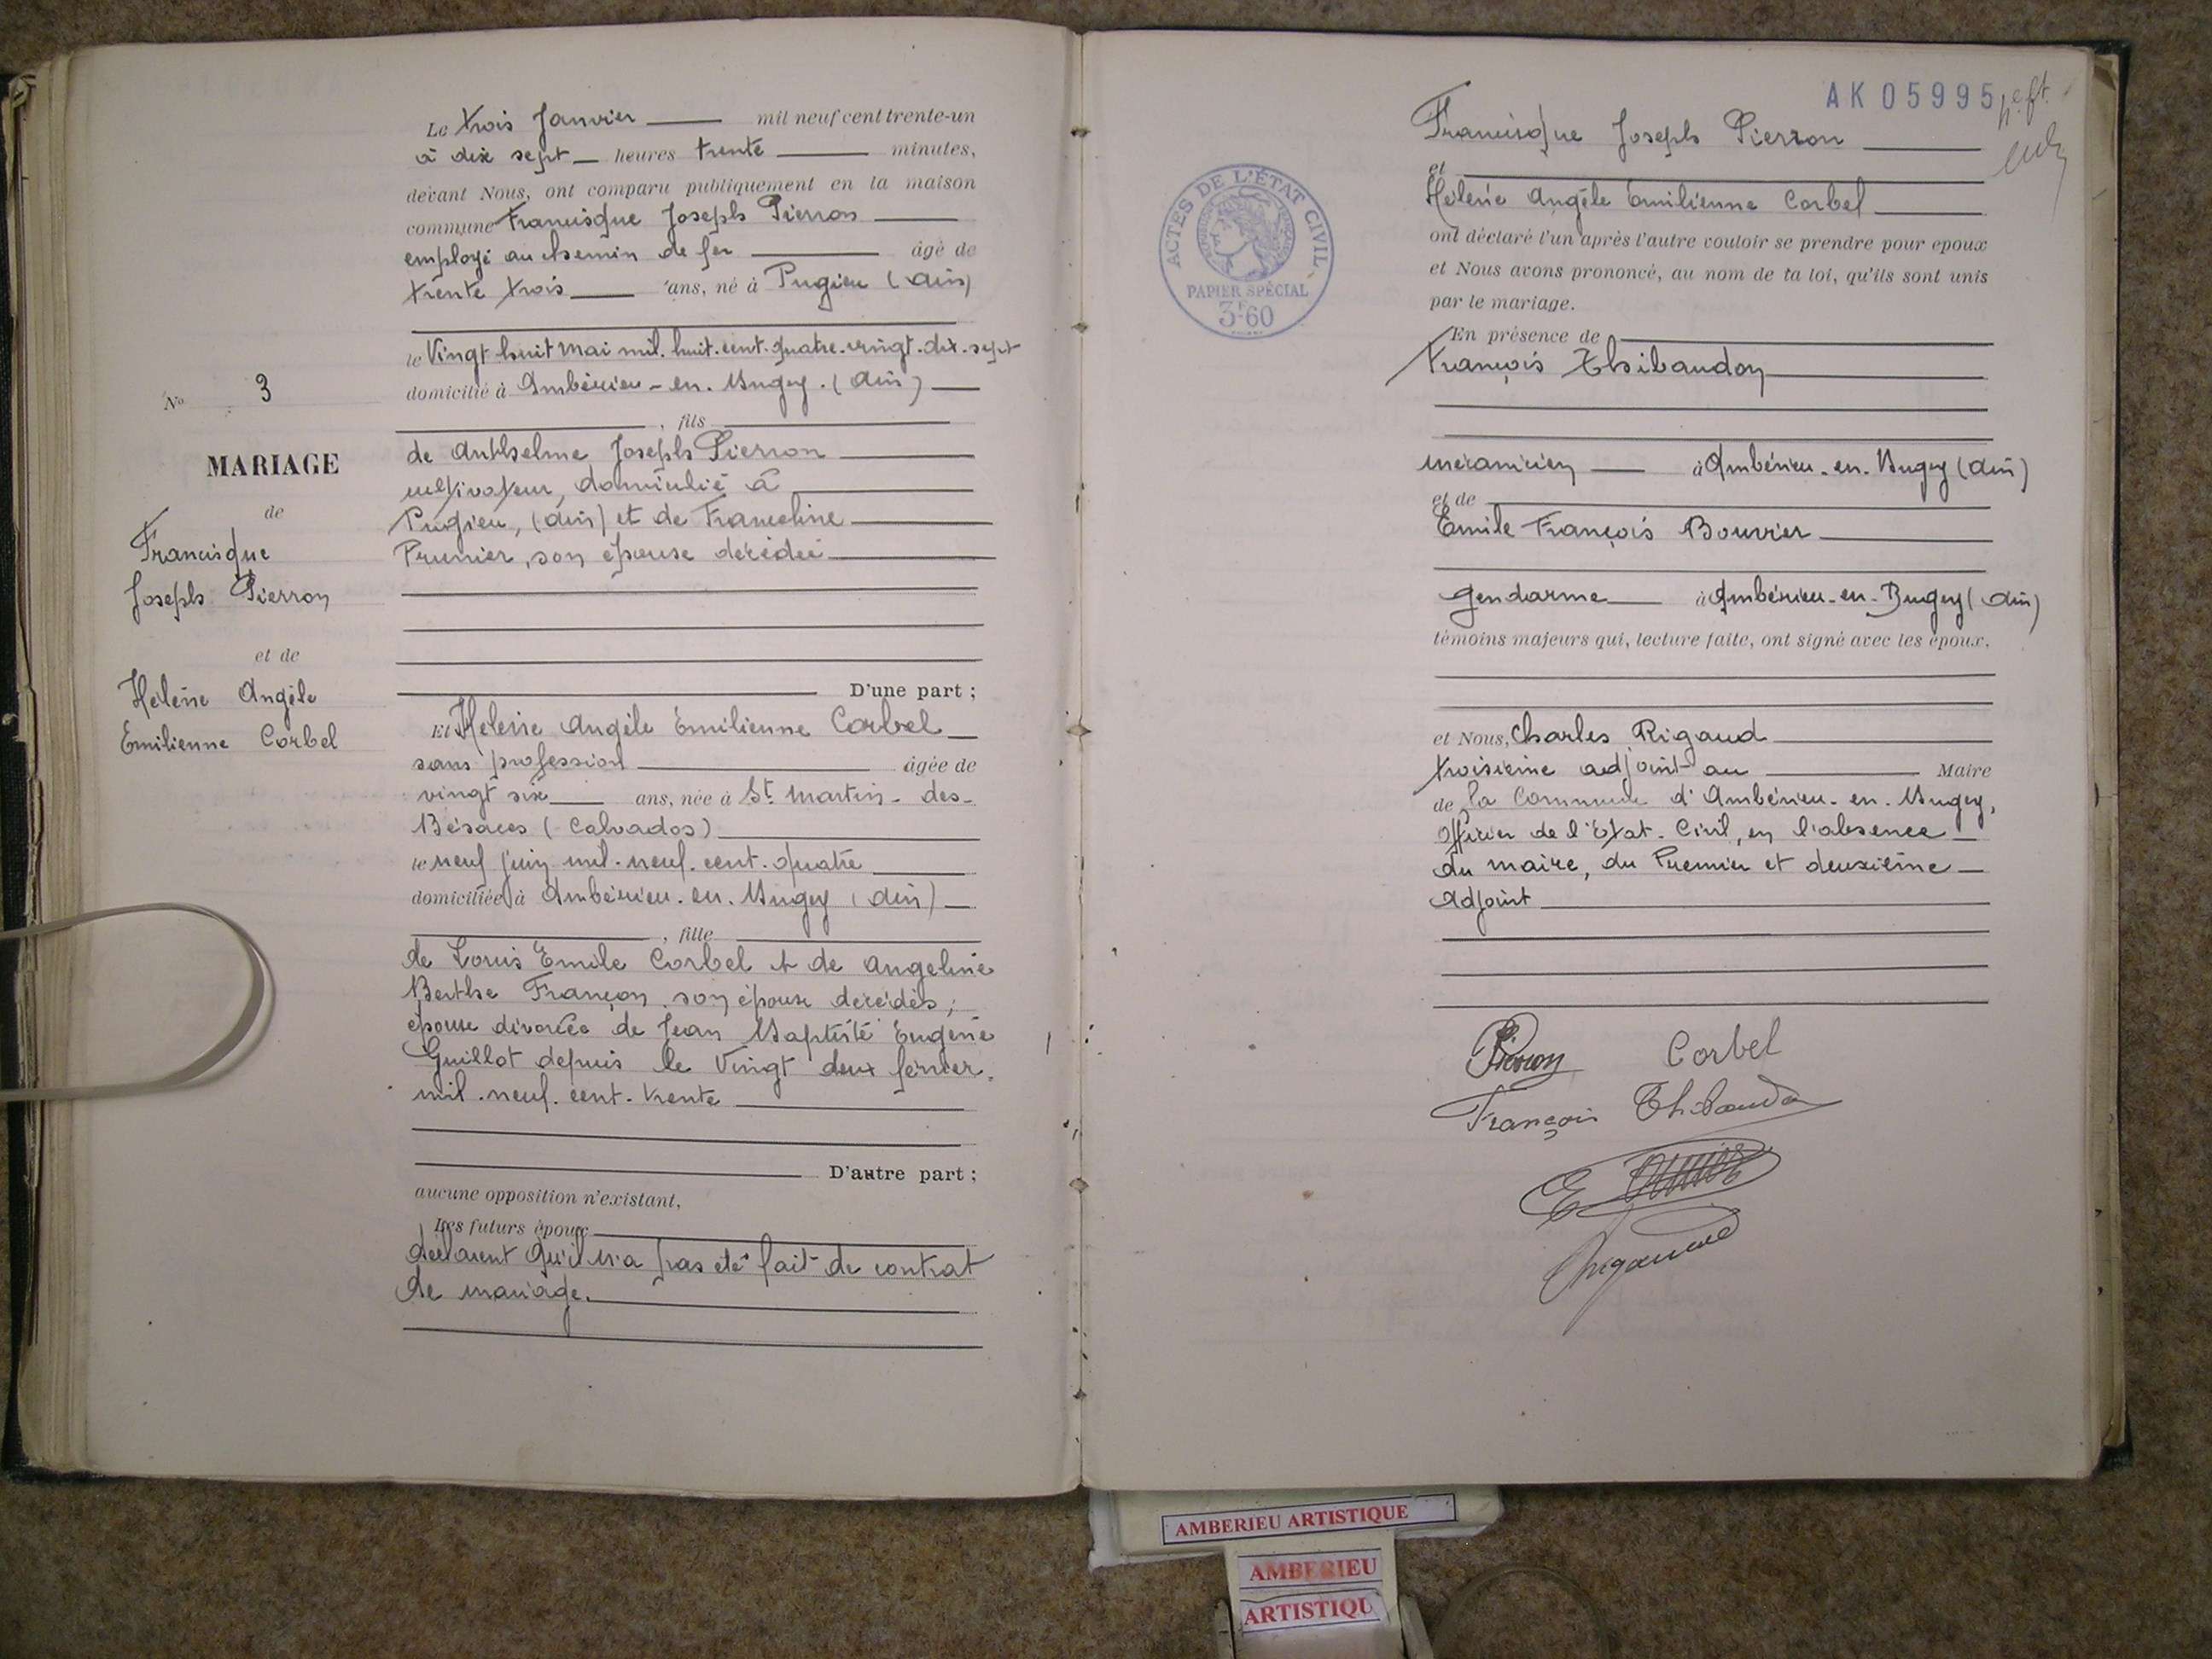 Le trois Janvier mil neuf cent trente-un
à dix sept heures trente minutes,
devant Nous, ont comparu publiquement en la maison
commune Francisque Joseph Pierron
employé au chemin de fer âgé de
trente trois ans, né à Pugieu (Ain)
le Vingt huit mai mil. huit. cent. quatre. vingt. dix. sept
domicilié à Ambérieu-en. Bugey. (Ain)
, fils
de Anthelme Joseph Pierron
cultivateur, domicilié à
Pugieu, (Ain) et de Franceline
Prunier, son épouse décédée
D'une part ;
Et Hélène Angèle Emilienne Corbel
sans profession âgée de
vingt six ans, née à St. Martin-des-
Bésaces (Calvados)
le neuf juin mil. neuf. cent. quatre
domiciliée à Ambérieu. en. Bugey (Ain)
, fille
de Louis Emile Corbel et de Angeline
Berthe Françon, son épouse décédés ;
épouse divorcée de Jean Baptiste Eugène
Guillot depuis le Vingt deux février
mil. neuf. cent. trente
D'autre part ;
aucune opposition n'existant,
Les futurs époux
déclarent qu'il n'a pas été fait de contrat
de mariage.
No 3
MARIAGE
de
Francisque
Joseph Pierron
et de
Hélène Angèle
Emilienne Corbel
AK 05995
Francisque Joseph Pierron
et
Hélène Angèle Emilienne Corbel
ont déclaré l'un après l'autre vouloir se prendre pour epoux
et Nous avons prononcé, au nom de la loi, qu'ils sont unis
par le mariage.
En présence de
François Thibaudon
mécanicien à Ambérieu-en-Bugey (Ain)
et de
Emile François Bouvier
gendarme à Ambérieu-en-Bugey (Ain)
témoins majeurs qui, lecture faite, ont signé avec les époux.
et Nous, Charles Rigaud
troisième adjoint au Maire
de la Commune d'Ambérieu-en. Bugey,
officier de l'Etat-Civil, en l'absence
du maire, du Premier et deuxième
Adjoint
Pierron Corbel
François Thibaudon
ACTES DE L'ÉTAT CIVIL
PAPIER SPÉCIAL
3F60
AMBERIEU ARTISTIQUE
AMBERIEU
ARTISTIQU